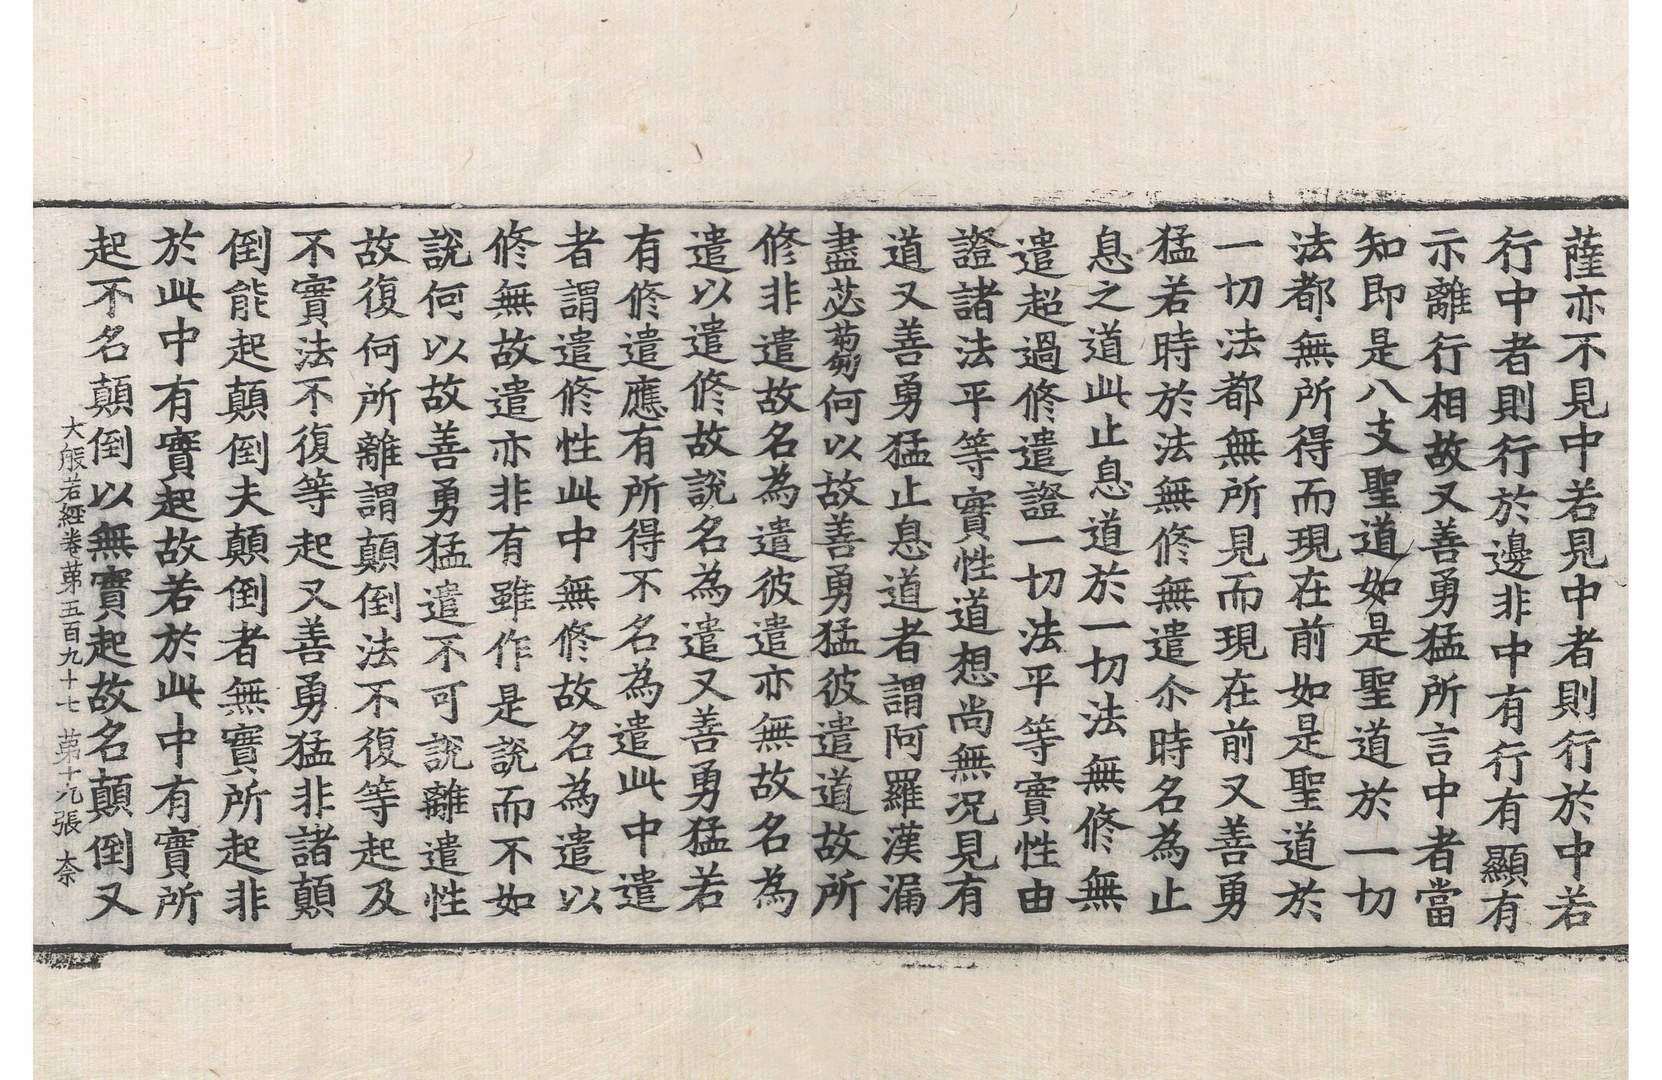 薩亦不見中若見中者則行於中若
行中者則行於邊非中有行有顯有
示離行相故又善勇猛所言中者當
知即是八支聖道如是聖道於一切
法都無所得而現在前如是聖道於
一切法都無所見而現在前又善勇
猛若時於法無修無遣尒時名為止
息之道此止息道於一切法無修無
遣超過修遣證一切法平等實性由
證諸法平等實性道想尚無况見有
道又善勇猛止息道者謂阿羅漢漏
盡苾芻何以故善勇猛彼遣道故所
修非遣故名為遣彼遣亦無故名為
遣以遣修故說名為遣又善勇猛若
有修遣應有所得不名為遣此中遣
者謂遣修性此中無修故名為遣以
修無故遣亦非有雖作是說而不如
說何以故善勇猛遣不可說離遣性
故復何所離謂顛倒法不復等起及
不實法不復等起又善勇猛非諸顛
倒能起顛倒夫顛倒者無實所起非
於此中有實起故若於此中有實所
起不名顛倒以無實起故名顛倒又
大般若經卷苐五百九十七 苐十九張 柰